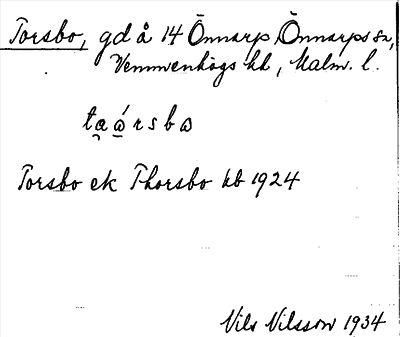 Torsbo, gd å 14 Önnarp, Önnarps sn,
Vemmenhögs hd, Malm. l.
Torsbo ek Thorsbo kb 1924
Nils Nilsson 1934